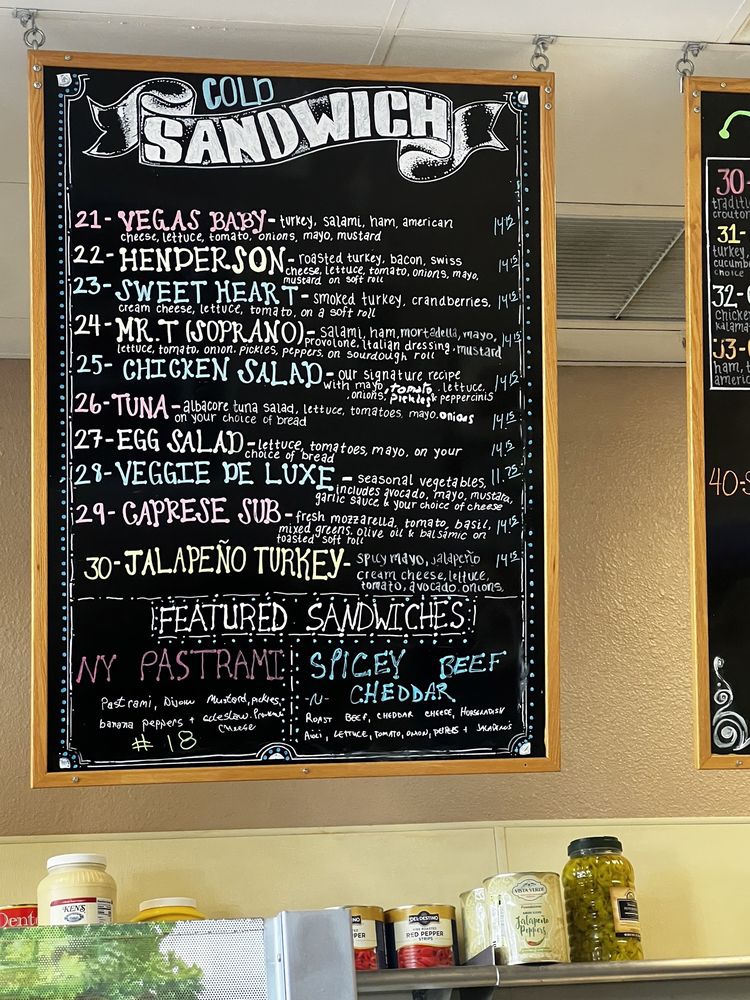 COLD
SANDWICH
21- VEGAS BABY- turkey, salami, ham, american 14.15
cheese, lettuce, tomato, onions, mayo, mustard
22- HENDERSON- roasted turkey, bacon, swiss
cheese, lettuce, tomato, onions, mayo, 14.15
mustard on soft roll
23- SWEET HEART- smoked turkey, crandberries, 14.15
cream cheese, lettuce, tomato, on a soft roll
24- MR.T (SOPRANO)- salami, ham, mortadella, mayo, 14.15
provolone, Italian dressing, mustard
lettuce, tomato, onion, pickles, peppers, on sourdough roll
25- CHICKEN SALAD- our signature recipe 14.15
with mayo, tomato, lettuce,
onions, pickles & peppercinis
26- TUNA- albacore tuna salad, lettuce, tomatoes, mayo, onions 14.15
on your choice of bread
27- EGG SALAD- lettuce, tomatoes, mayo, on your 14.15
choice of bread
28- VEGGIE DE LUXE- seasonal vegetables, 11.75
includes avocado, mayo, mustard,
garlic sauce & your choice of cheese
29- CAPRESE SUB- fresh mozzarella, tomato, basil, 14.15
mixed greens, olive oil & balsamic on
toasted soft roll
30- JALAPEÑO TURKEY- spicy mayo, jalapeño 14.15
cream cheese, lettuce,
tomato, avocado, onions,
FEATURED SANDWICHES
NY PASTRAMI
Pastrami, Dijon Mustard, pickles,
banana peppers + coleslaw. Provolone
Cheese
# 18
SPICEY BEEF
-N- CHEDDAR
ROAST BEEF, CHEDDAR CHEESE, HORSERADISH
AIOLI, LETTUCE, TOMATO, ONION, PEPPERS + JALAPENOS
30-
31-
turkey,
choice
32-
33-
ham,
40-
KEN'S
DEL DESTINO
RED PEPPER
STRIPS
VISTA VERDE
Jalapeño
Peppers